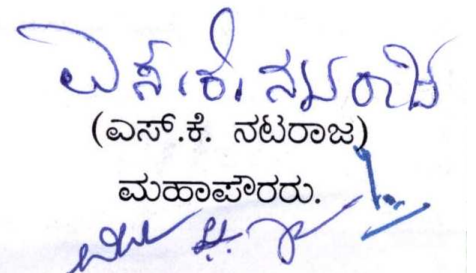 ಎಸ್.ಕೆ. ನಟರಾಜ
(ಎಸ್.ಕೆ. ನಟರಾಜ)
ಮಹಾಪೌರರು.